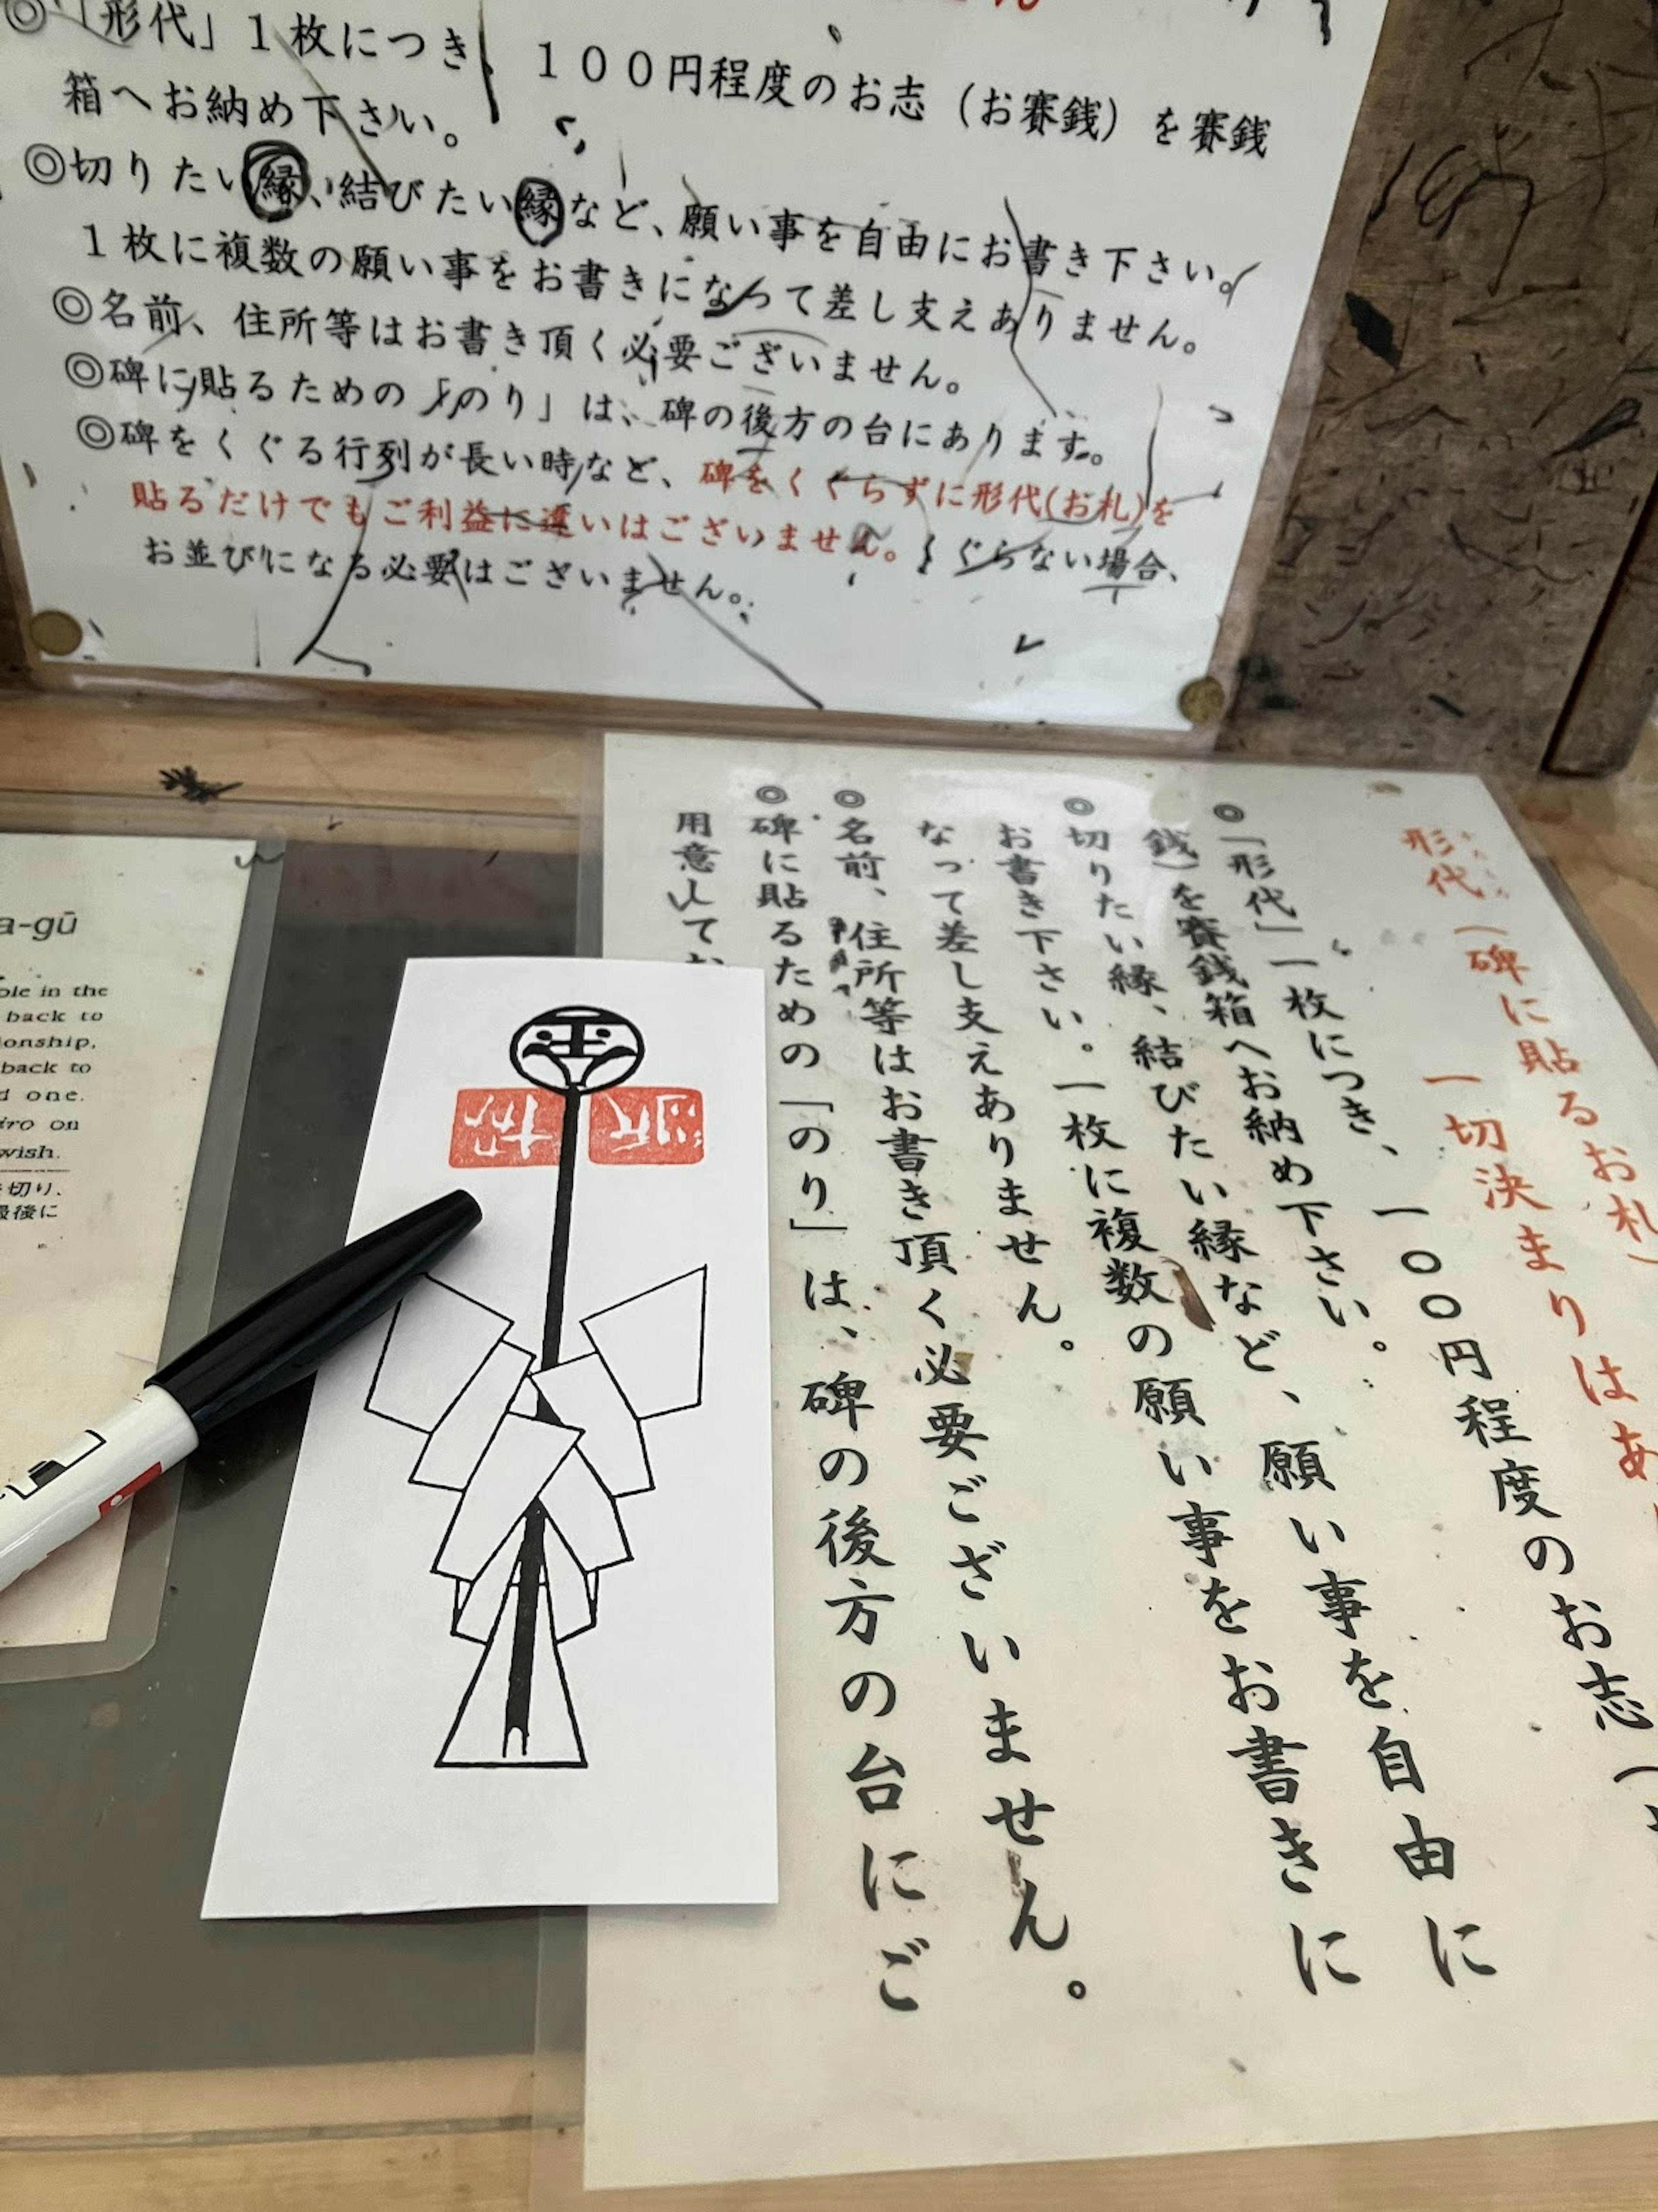 ◎「形代」１枚につき、１００円程度のお志（お賽銭）を賽銭
箱へお納め下さい。
◎切りたい縁、結びたい縁など、願い事を自由にお書き下さい。
１枚に複数の願い事をお書きになって差し支えありません。
◎名前、住所等はお書き頂く必要ございません。
◎碑に貼るための「のり」は、碑の後方の台にあります。
◎碑をくぐる行列が長い時など、碑をくぐらずに形代(お札)を
貼るだけでもご利益に違いはございません。くぐらない場合、
お並びになる必要はございません。
形代（碑に貼るお札）
一切決まりはあ
◎「形代」一枚につき、一〇〇円程度のお志（
銭）を賽銭箱へお納め下さい。
◎切りたい縁、結びたい縁など、願い事を自由に
お書き下さい。一枚に複数の願い事をお書きに
なって差し支えありません。
◎名前、住所等はお書き頂く必要ございません。
◎碑に貼るための「のり」は、碑の後方の台にご
用意してお
a-gū
ole in the
back to
ionship,
back to
d one.
iro on
wish.
を切り、
最後に